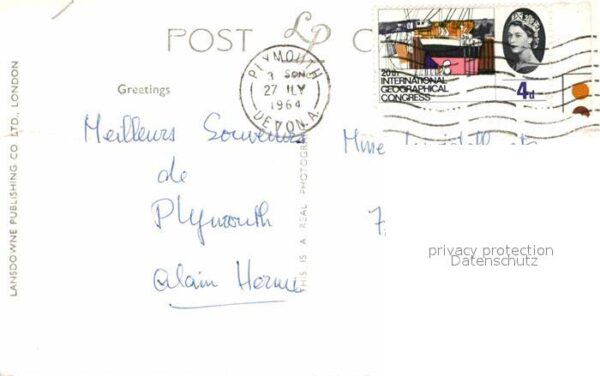 POST C
LP
PLYMOUTH
27 JLY
1964
DEVON. A.
20th
INTERNATIONAL
GEOGRAPHICAL
CONGRESS
4d
Greetings
Meilleurs Souvenirs
de
Plymouth
Alain
Mme
privacy protection
Datenschutz
THIS IS A REAL PHOTOGR
LANSDOWNE PUBLISHING CO LTD., LONDON